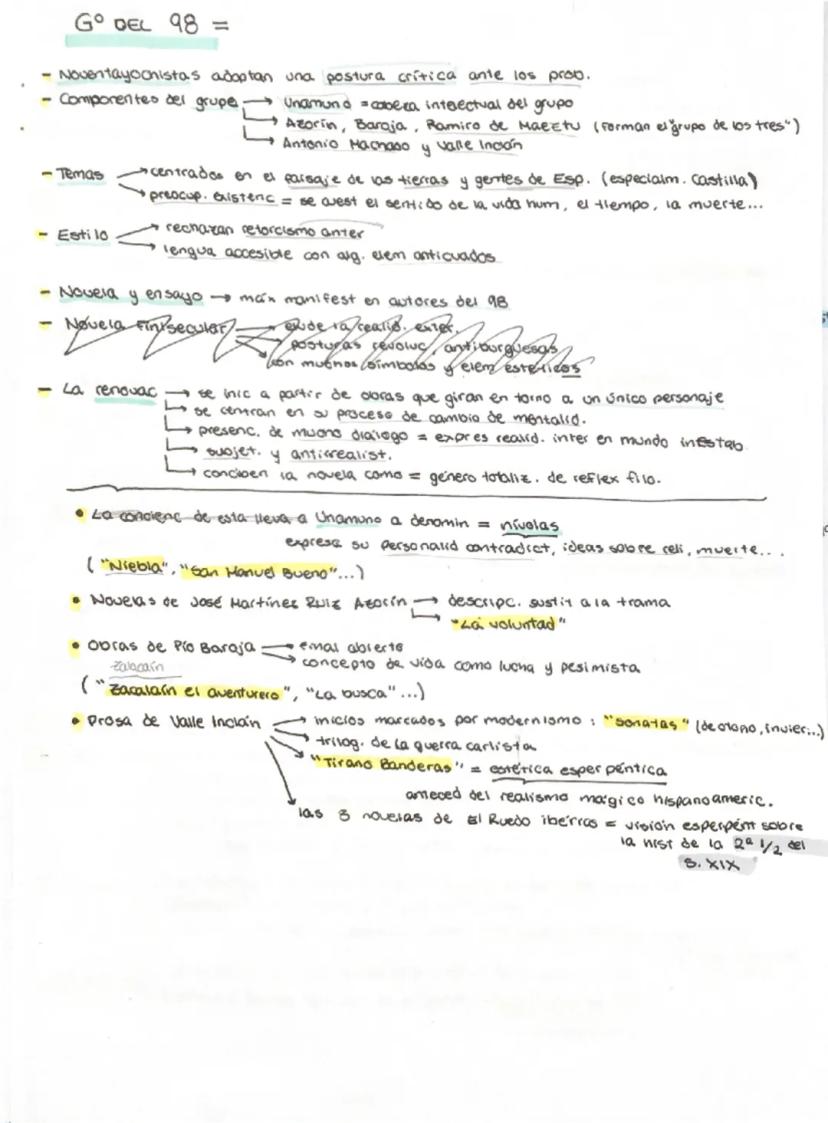 Gº DEL 98 =
- Noventayochistas adoptan una postura crítica ante los prob.
- Componentes del grupo → Unamuno = cabeza intelectual del grupo
→ Azorín, Baroja, Ramiro de Maeztu (forman el "grupo de los tres")
→ Antonio Machado y Valle Inclán
- Temas → centrados en el paisaje de las tierras y gentes de Esp. (especialm. Castilla)
→ preocup. existenc = se cuest el sentido de la vida hum, el tiempo, la muerte...
- Estilo → rechazan retorcismo anter
→ lengua accesible con alg. elem anticuados
- Novela y ensayo → máx manifest en autores del 98
- Novela finisecular → elude la realid. exter.
→ posturas revoluc, antiburguesas
→ con muchos símbolos y elem estéticos
- La renovac → se inic a partir de obras que giran en torno a un único personaje
→ se centran en su proceso de cambio de mentalid.
→ presenc. de mucho diálogo = expres realid. inter en mundo inestab
→ subjet. y antirrealist.
→ conciben la novela como = género totaliz. de reflex filo.
• La concienc de esta lleva a Unamuno a denomin = nívolas
expresa su personalid contradict, ideas sobre reli, muerte...
("Niebla", "San Manuel Bueno"...)
• Novelas de José Martínez Ruiz Azorín → descripc. sustit a la trama
→ "La voluntad"
• Obras de Pío Baroja → final abierto
→ concepto de vida como lucha y pesimista
Zalacaín
("Zacalaín el aventurero", "La busca"...)
• Prosa de Valle Inclán → inicios marcados por modernismo : "Sonatas" (de otoño, invier...)
→ trilog. de la guerra carlista
→ "Tirano Banderas" = estética esperpéntica
anteced del realismo mágico hispanoameric.
→ las 3 novelas de El Ruedo ibérras = visión esperpént sobre
la hist de la 2ª 1/2 del
S. XIX